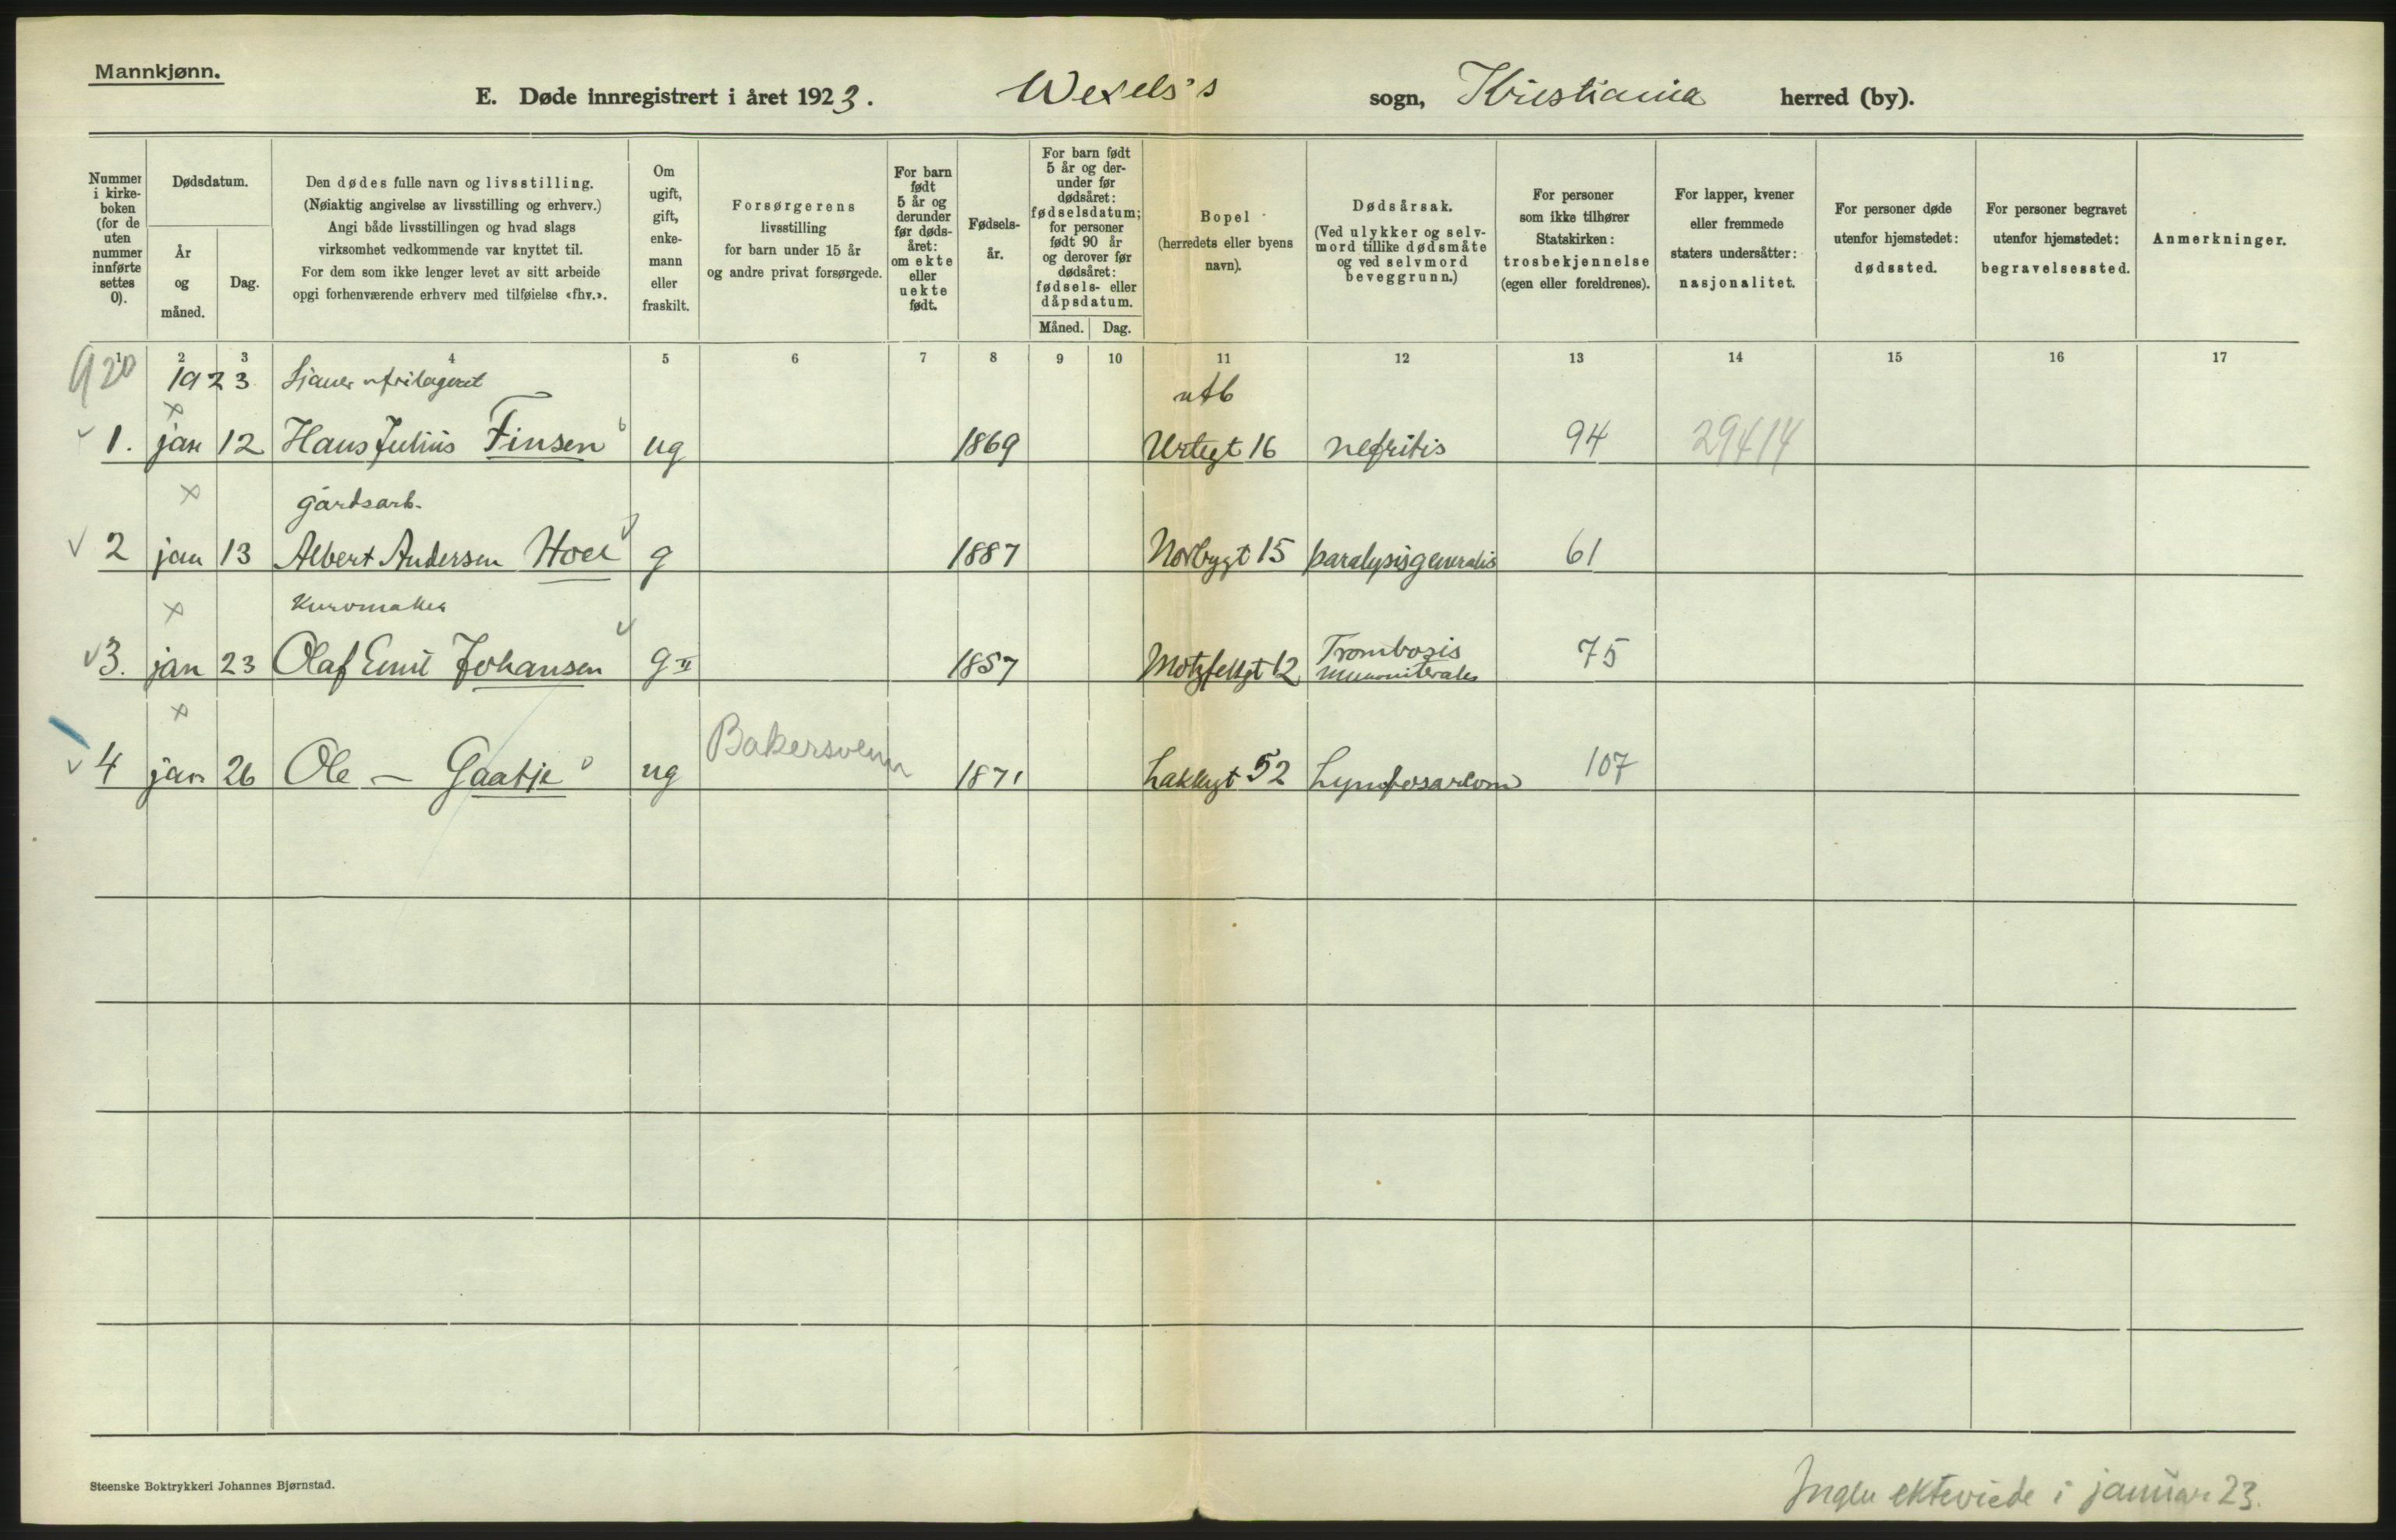 Mannkjønn.
E. Døde innregistrert i året 1923. Wexels's sogn, Kristiania herred (by).
Nummer i kirkeboken (for de uten nummer innførte settes 0).
Dødsdatum.
År og måned.
Dag.
Den dødes fulle navn og livsstilling.
(Nøiaktig angivelse av livsstilling og erhverv.)
Angi både livsstillingen og hvad slags
virksomhet vedkommende var knyttet til.
For dem som ikke lenger levet av sitt arbeide
opgi forhenværende erhverv med tilføielse «fhv.».
Om ugift, gift, enkemann eller fraskilt.
Forsørgerens
livsstilling
for barn under 15 år
og andre privat forsørgede.
For barn født 5 år og derunder før dødsåret: om ekte eller uekte født.
Fødselsår.
For barn født 5 år og derunder før dødsåret: fødselsdatum; for personer født 90 år og derover før dødsåret: fødsels- eller dåpsdatum.
Måned. Dag.
Bopel
(herredets eller byens navn).
Dødsårsak.
(Ved ulykker og selvmord tillike dødsmåte og ved selvmord beveggrunn.)
For personer som ikke tilhører Statskirken: trosbekjennelse (egen eller foreldrenes).
For lapper, kvener eller fremmede staters undersåtter: nasjonalitet.
For personer døde utenfor hjemstedet: dødssted.
For personer begravet utenfor hjemstedet: begravelsessted.
Anmerkninger.
1 2 3 4 5 6 7 8 9 10 11 12 13 14 15 16 17
920 1923 Sjauer v frilageret utb
1. jan 12 Hans Julius Finsen ug 1869 Urtegt 16 nefritis 94 29414
gårdsarb.
2 jan 13 Albert Andersen Hoel g 1887 Norbygt 15 paralysis generalis 61
Kurvmaker
3. jan 23 Olaf Emil Johansen g II 1857 Motzfeldtgt 12 Trombosis 75
4 jan 26 Ole — Gaatje ug Bakersvenn 1871 Lakkegt 52 Lymfosarkom 107
Steenske Boktrykkeri Johannes Bjørnstad.
Ingen ekteviede i januar 23.